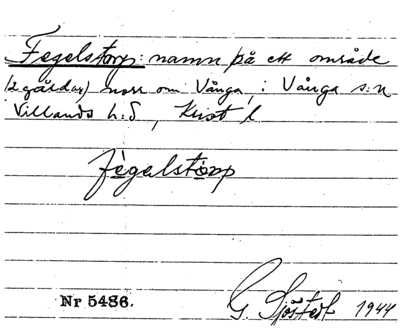 Fegelstorp: namn på ett område
(2 gårdar) norr om Vånga, i Vånga s:n
Villands h:d, Krist l
fègelstòrp
Nr 5486.
G. Sjöstedt 1944